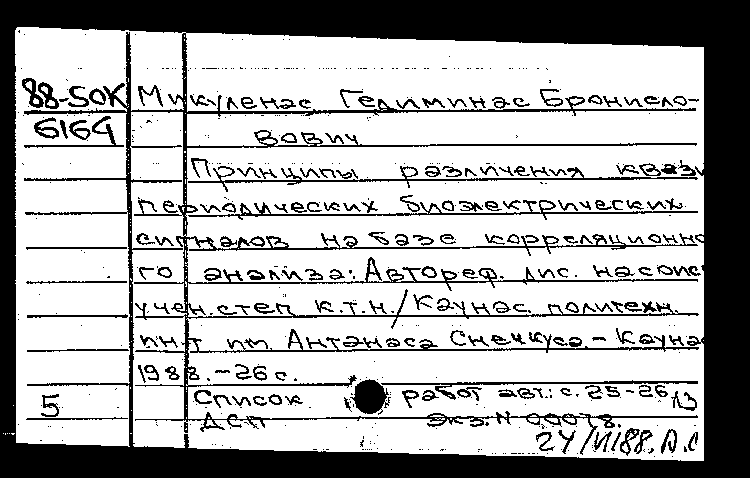 88-5OK Микуленас Гедиминас Бронисло-
6164 вович
Принципы различения квази
периодических биоэлектрических
сигналов на базе корреляционно
го анализа: Автореф. дис. на соис
учен. степ к.т.н./Каунас. политехн.
ин-т им. Антанаса Снечкуса. - Каунас
1988. - 26 с.
5 Список работ авт.: с. 25-26 13
ДСП Экз. N 00078.
24/VI188.